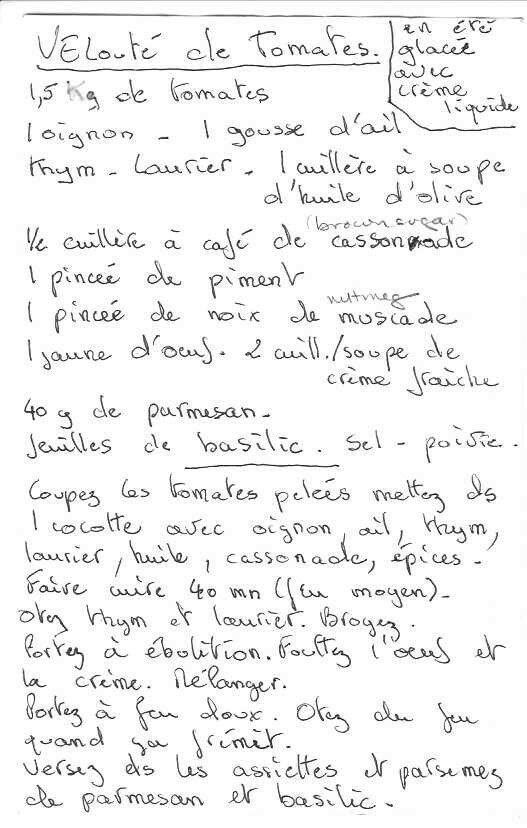 Velouté de Tomates.
en été
glacée
avec
crème
liquide
1,5 Kg de tomates
1 oignon - 1 gousse d'ail
thym - laurier - 1 cuillère à soupe
d'huile d'olive
(brown sugar)
1/2 cuillère à café de cassonade
1 pincée de piment
nutmeg
1 pincée de noix de muscade
1 jaune d'oeuf. 2 cuill./soupe de
crème fraîche
40 g de parmesan -
feuilles de basilic. Sel - poivre.
Coupez les tomates pelées mettez ds
1 cocotte avec oignon, ail, thym,
laurier, huile, cassonade, épices -
Faire cuire 40 mn (feu moyen) -
Otez thym et laurier. Broyez.
Portez à ébolition. Fouttez l'oeuf et
la crème. Mélanger.
Portez à feu doux. Otez du feu
quand ça frémit.
Versez ds les assiettes et parsemez
de parmesan et basilic.